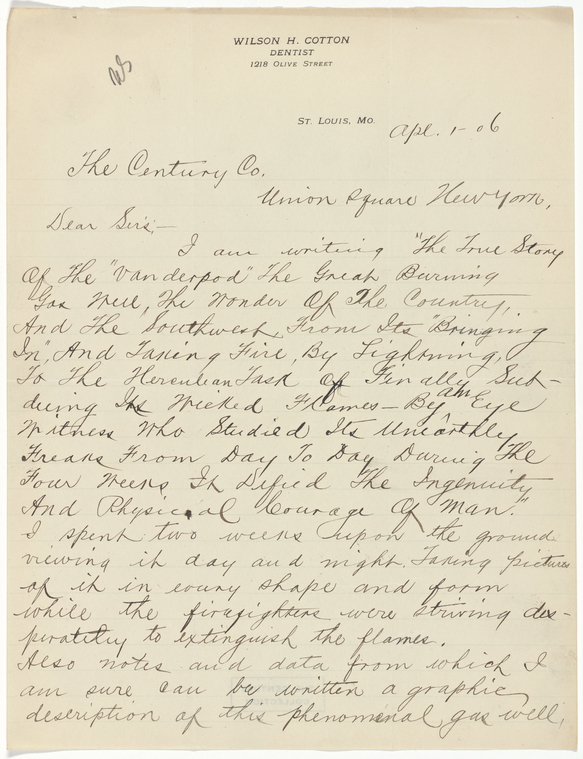 WILSON H. COTTON
DENTIST
1218 OLIVE STREET
ST. LOUIS, MO. Apl. 1- 06
The Century Co.
Union Square New York,
Dear Sirs;—
I am writing "The True Story
Of The "Vanderpod" The Great Burning
Gas Well, The Wonder Of The Country,
And The Southwest, From Its "Bringing
In", And Taking Fire, By Lightning,
To The Herculean Task Of Finally Sub-
duing Its Wicked Flames — By an Eye
Witness Who Studied Its Unearthly
Freaks From Day To Day During The
Four Weeks It Defied The Ingenuity
And Physical Courage Of Man."
I spent two weeks upon the ground
viewing it day and night. Taking pictures
of it in every shape and form
while the firefighters were striving des-
perately to extinguish the flames.
Also notes and data from which I
am sure can be written a graphic
description of this phenomenal gas well,